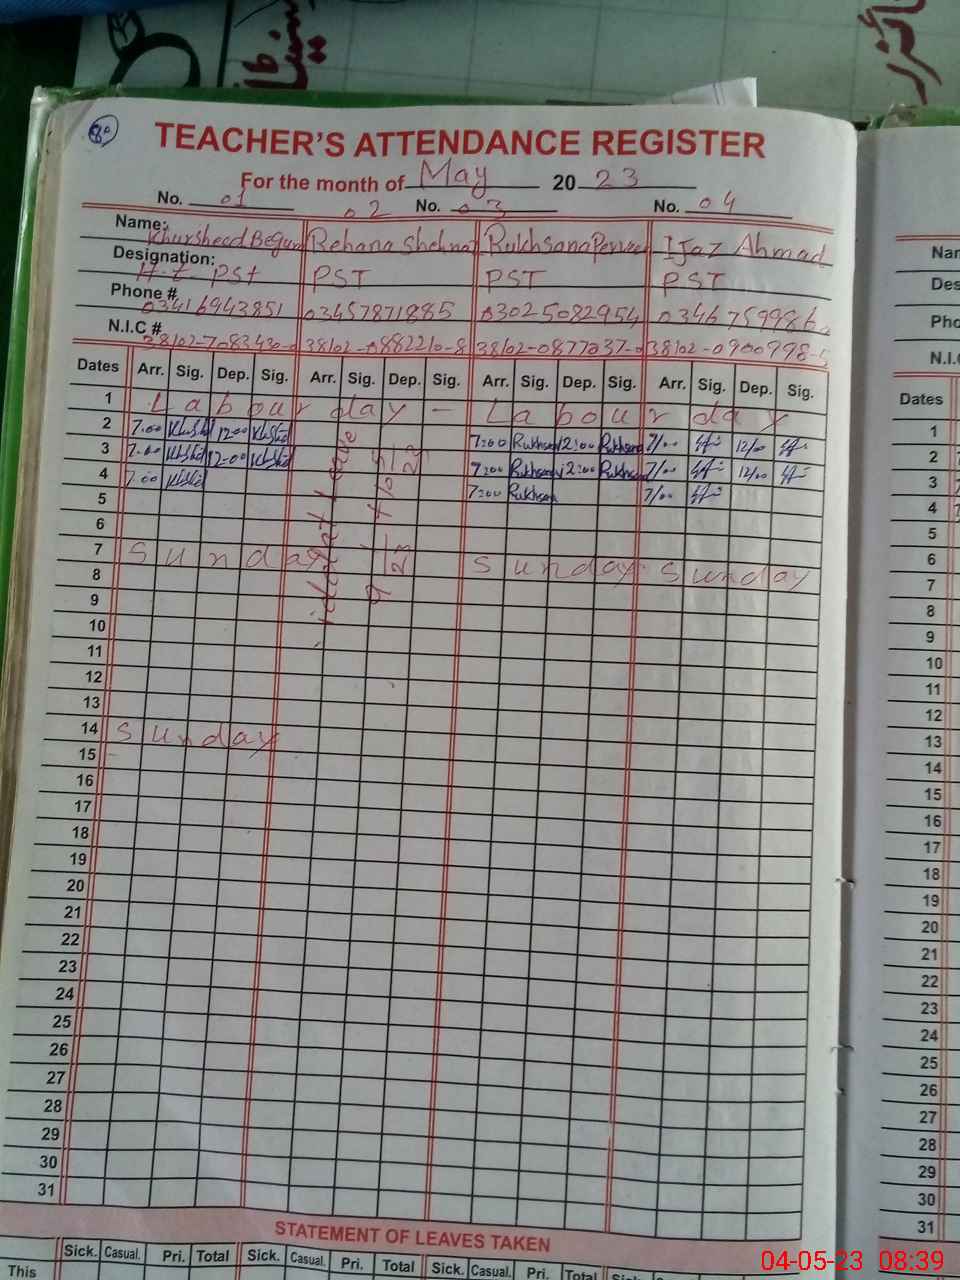 80
TEACHER'S ATTENDANCE REGISTER
For the month of May 2023
No. 01 02 No. 03 No. 04
Name: Khursheed Begum Rehana Shehnaz Rukhsana Perveen Ijaz Ahmad
Designation: H.t PST PST PST PST
Phone # 03416943851 03457871885 03025082954 0346759986
N.I.C # 38102-0882210-8 38102-0877037- 38102-0900998-5
Dates Arr. Sig. Dep. Sig. Arr. Sig. Dep. Sig. Arr. Sig. Dep. Sig. Arr. Sig. Dep. Sig.
1 Labour day - Labour day
2 7.00 12.00 7:00 Rukhsana 12:00 Rukhsana 7/00 12/00
3 7.00 12.00 7:00 Rukhsana 12:00 Rukhsana 7/00 12/00
4 7.00 7:00 Rukhsana 7/00
5
6
7 Sunday Sunday Sunday
8
9
10
11
12
13
14 Sunday
15
16
17
18
19
20
21
22
23
24
25
26
27
28
29
30
31
STATEMENT OF LEAVES TAKEN
Sick. Casual. Pri. Total Sick. Casual. Pri. Total Sick. Casual. Pri. Total Sick.
This
Nar
Des
Pho
N.I.
Dates
1
2
3
4
5
6
7
8
9
10
11
12
13
14
15
16
17
18
19
20
21
22
23
24
25
26
27
28
29
30
31
04-05-23 08:39